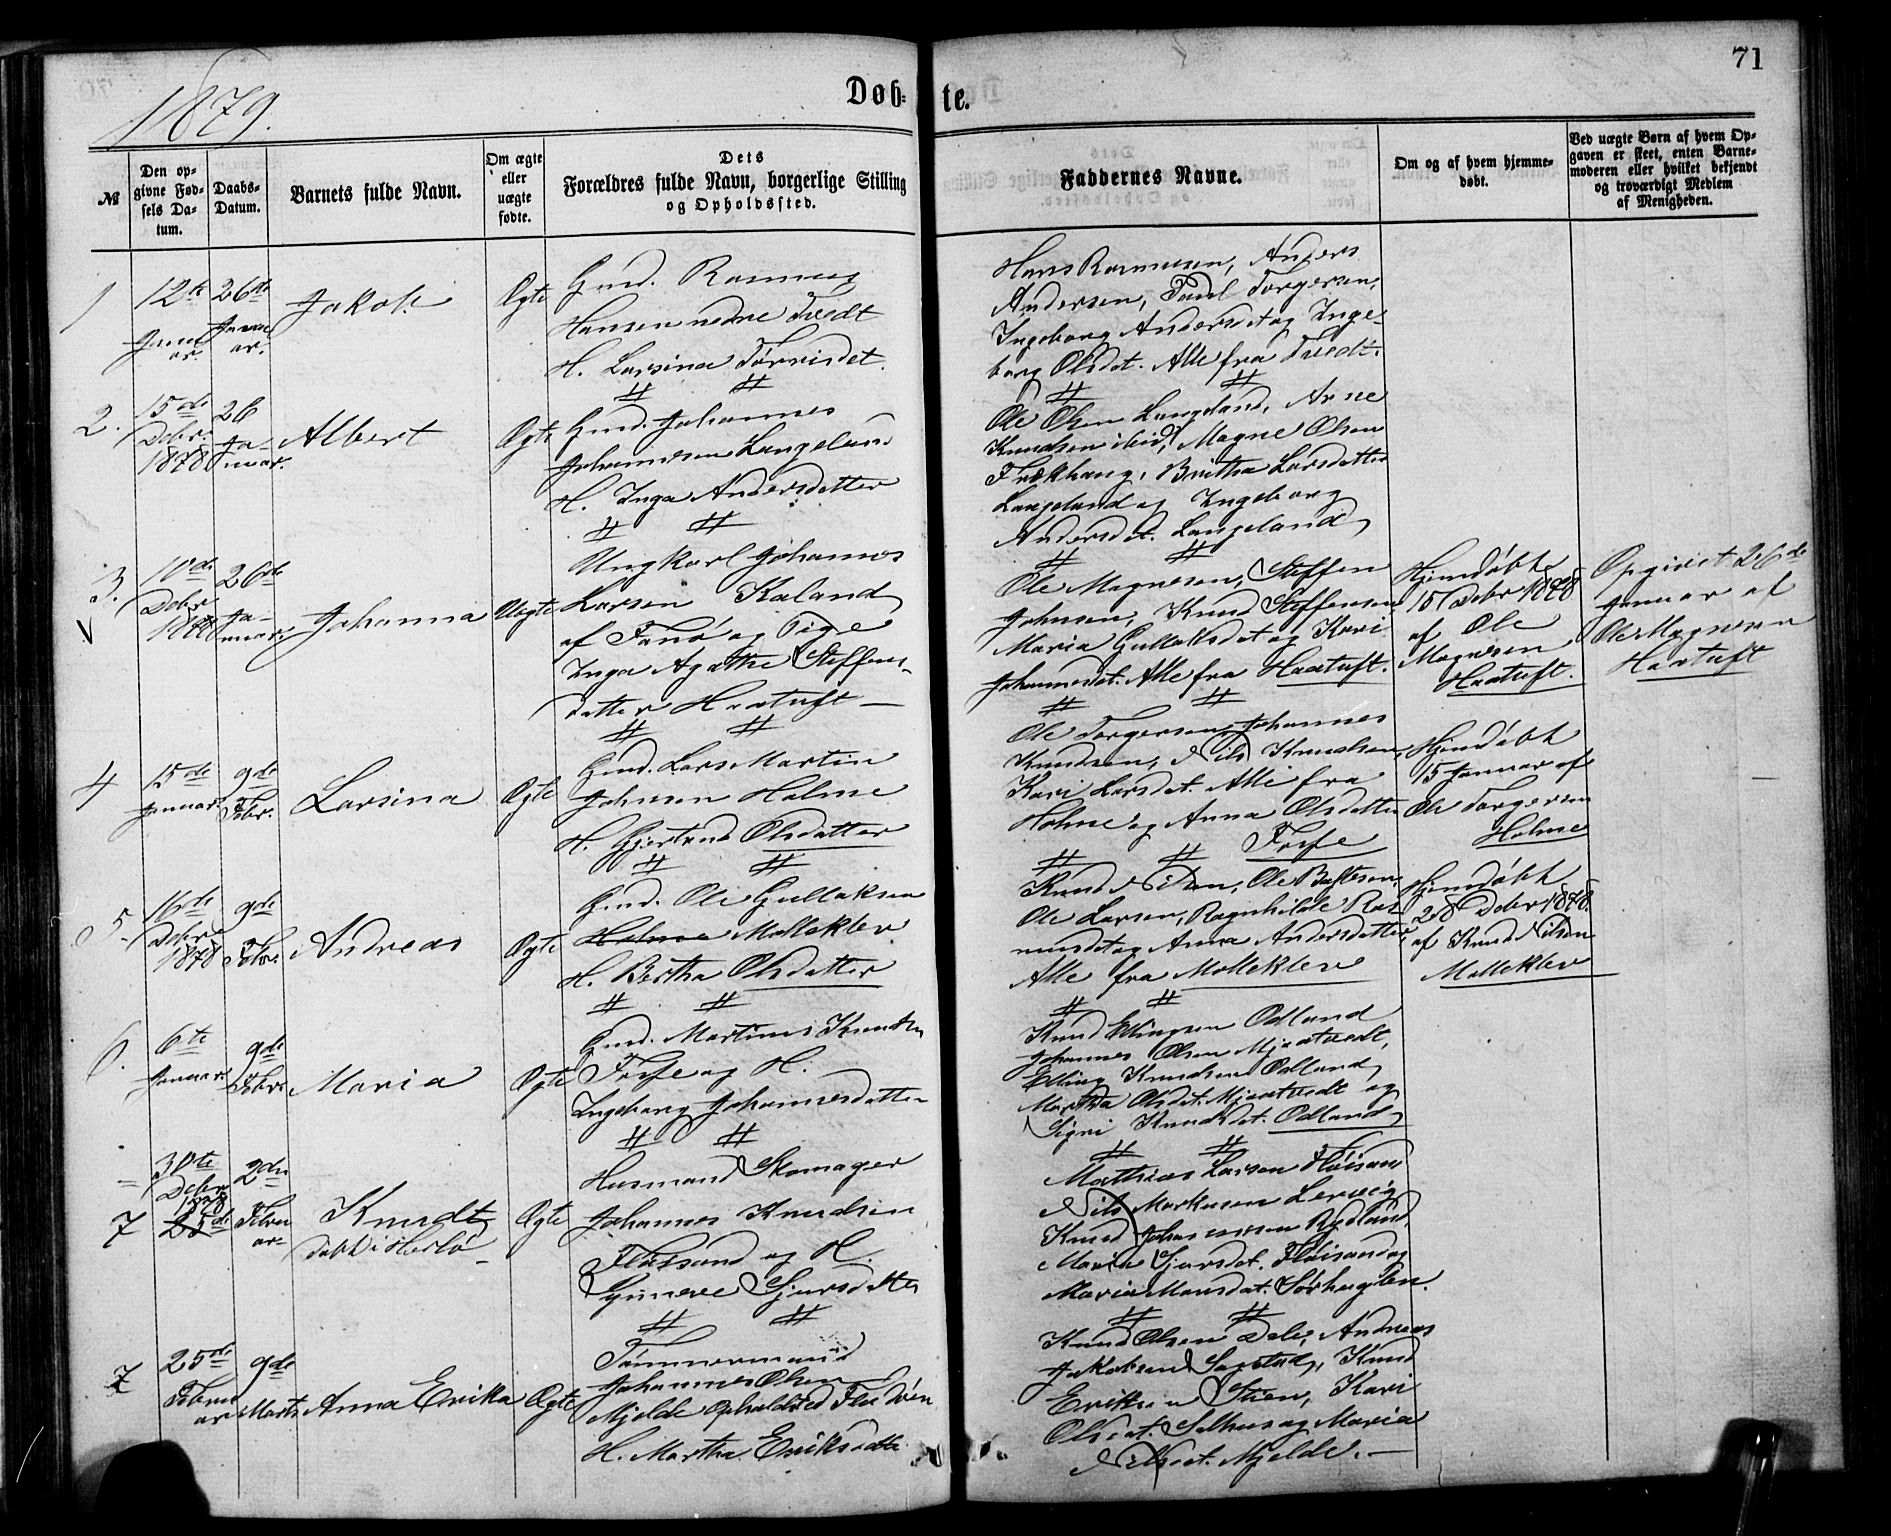 71
1879.
Døb-
te.
№
Den op-
givne Fød-
sels Da-
tum.
Daabs-
Datum.
Barnets fulde Navn.
Om ægte
eller
uægte
fødte.
Dets
Forældres fulde Navn, borgerlige Stilling
og Opholdssted.
Faddernes Navne.
Om og af hvem hjemme-
døbt.
Ved uægte Børn af hvem Op-
gaven er skeet, enten Barne-
moderen eller hvilket bekjendt
og troværdigt Medlem
af Menigheden.
1
12te
Janu
ar.
26de
Janu
ar.
Jakob
Ægte
Gmd. Rasmus
Hansen nedre Tvedt
H. Larsina
Hans Rasmusen, Anders
Andersen, Paul Torgersen,
Ingeborg Andersdt og Inge-
borg Olsdat. Alle fra Tvedt.
2.
15de
Debr.
1878
26
Ja-
nuar.
Albert
Ægte
Gmd. Johannes
Johannesen Langeland
H. Inga Andersdatter
Ole Olsen Langeland, Arne
Knudsen ibid, Magne Olsen
Britha Larsdatter
Langeland og Ingeborg
Andersdt. Langeland
3.
10de
Debr
26de
Ja-
nuar.
Johanna
Uægte
Ungkarl Johannes
Larsen Kaland
af Fanø og Pige
Inga Agathe Steffens-
datter Haatuft
Ole Magnesen, Steffen
Johnsen, Knud Steffensen
Maria Gullaksdt og Kari
Johannesdt. Alle fra Haatuft.
Hjemdøbt
15 Debr 1878
af Ole
Magnesen
Haatuft.
Opgivet 26de
Januar af
Ole Magnesen
Haatuft
4
15de
Januar.
9de
Febr.
Larsina
Ægte
Gmd. Lars Martin
Johnsen Holme
H. Gjertrud Olsdatter
Ole Torgersen, Johannes
Knudsen, Nils Knudsen,
Kari Larsdt. Alle fra
Holme og Anna Olsdatter
Fosse
Hjemdøbt
15 Januar af
Ole Torgersen
Holme
5.
16de
Debr
1878
9de
Febr.
Andreas
Ægte
Gmd. Ole Gullaksen
Holme Molleklev
H. Bertha Olsdatter
Knud Nilsen, Ole
Ole Larsen, Ragnhilde Ras
musdt og Anna Andersdatter
Alle fra Molleklev
Hjemdøbt
28 Debr 1878
af Knud Nilsen
Molleklev
6.
6te
Januar.
9de
Febr.
Maria
Ægte
Gmd. Martinus Knudsen
Fosse og H.
Ingeborg Johannesdatter
Knud Ellingsen Odland
Johannes Olsen Mjaatvedt,
Elling Knudsen Odland,
Martha Olsdt. Mjaatvedt og
Sigri Knudsdt. Odland
7
30te
Debr
1878
25de
2den
Febru
ar
Knudt
døbt i Herlø
Ægte
Husmand Skomager
Johannes Knudsen
Fløisand og H.
Gunere Sjursdatter
Mathias Larsen Fløisand
Nils Markusen Lervig
Knud Johannesen Rydland,
Marthe Sjursdt. Fløisand og
Maria Monsdat.
7
25de
Febru
ar
9de
Marts
Anna Erika
Ægte
Tømmermand
Johannes Olsen
Mjelde Opholdsted
H. Martha Eriksdatter
Knud Olsen Dale, Andreas
Jakobsen Sagstad, Knud
Eriksen Stien, Kari
Olsdat. Salhus og Maria
Nilsdt. Mjelde.